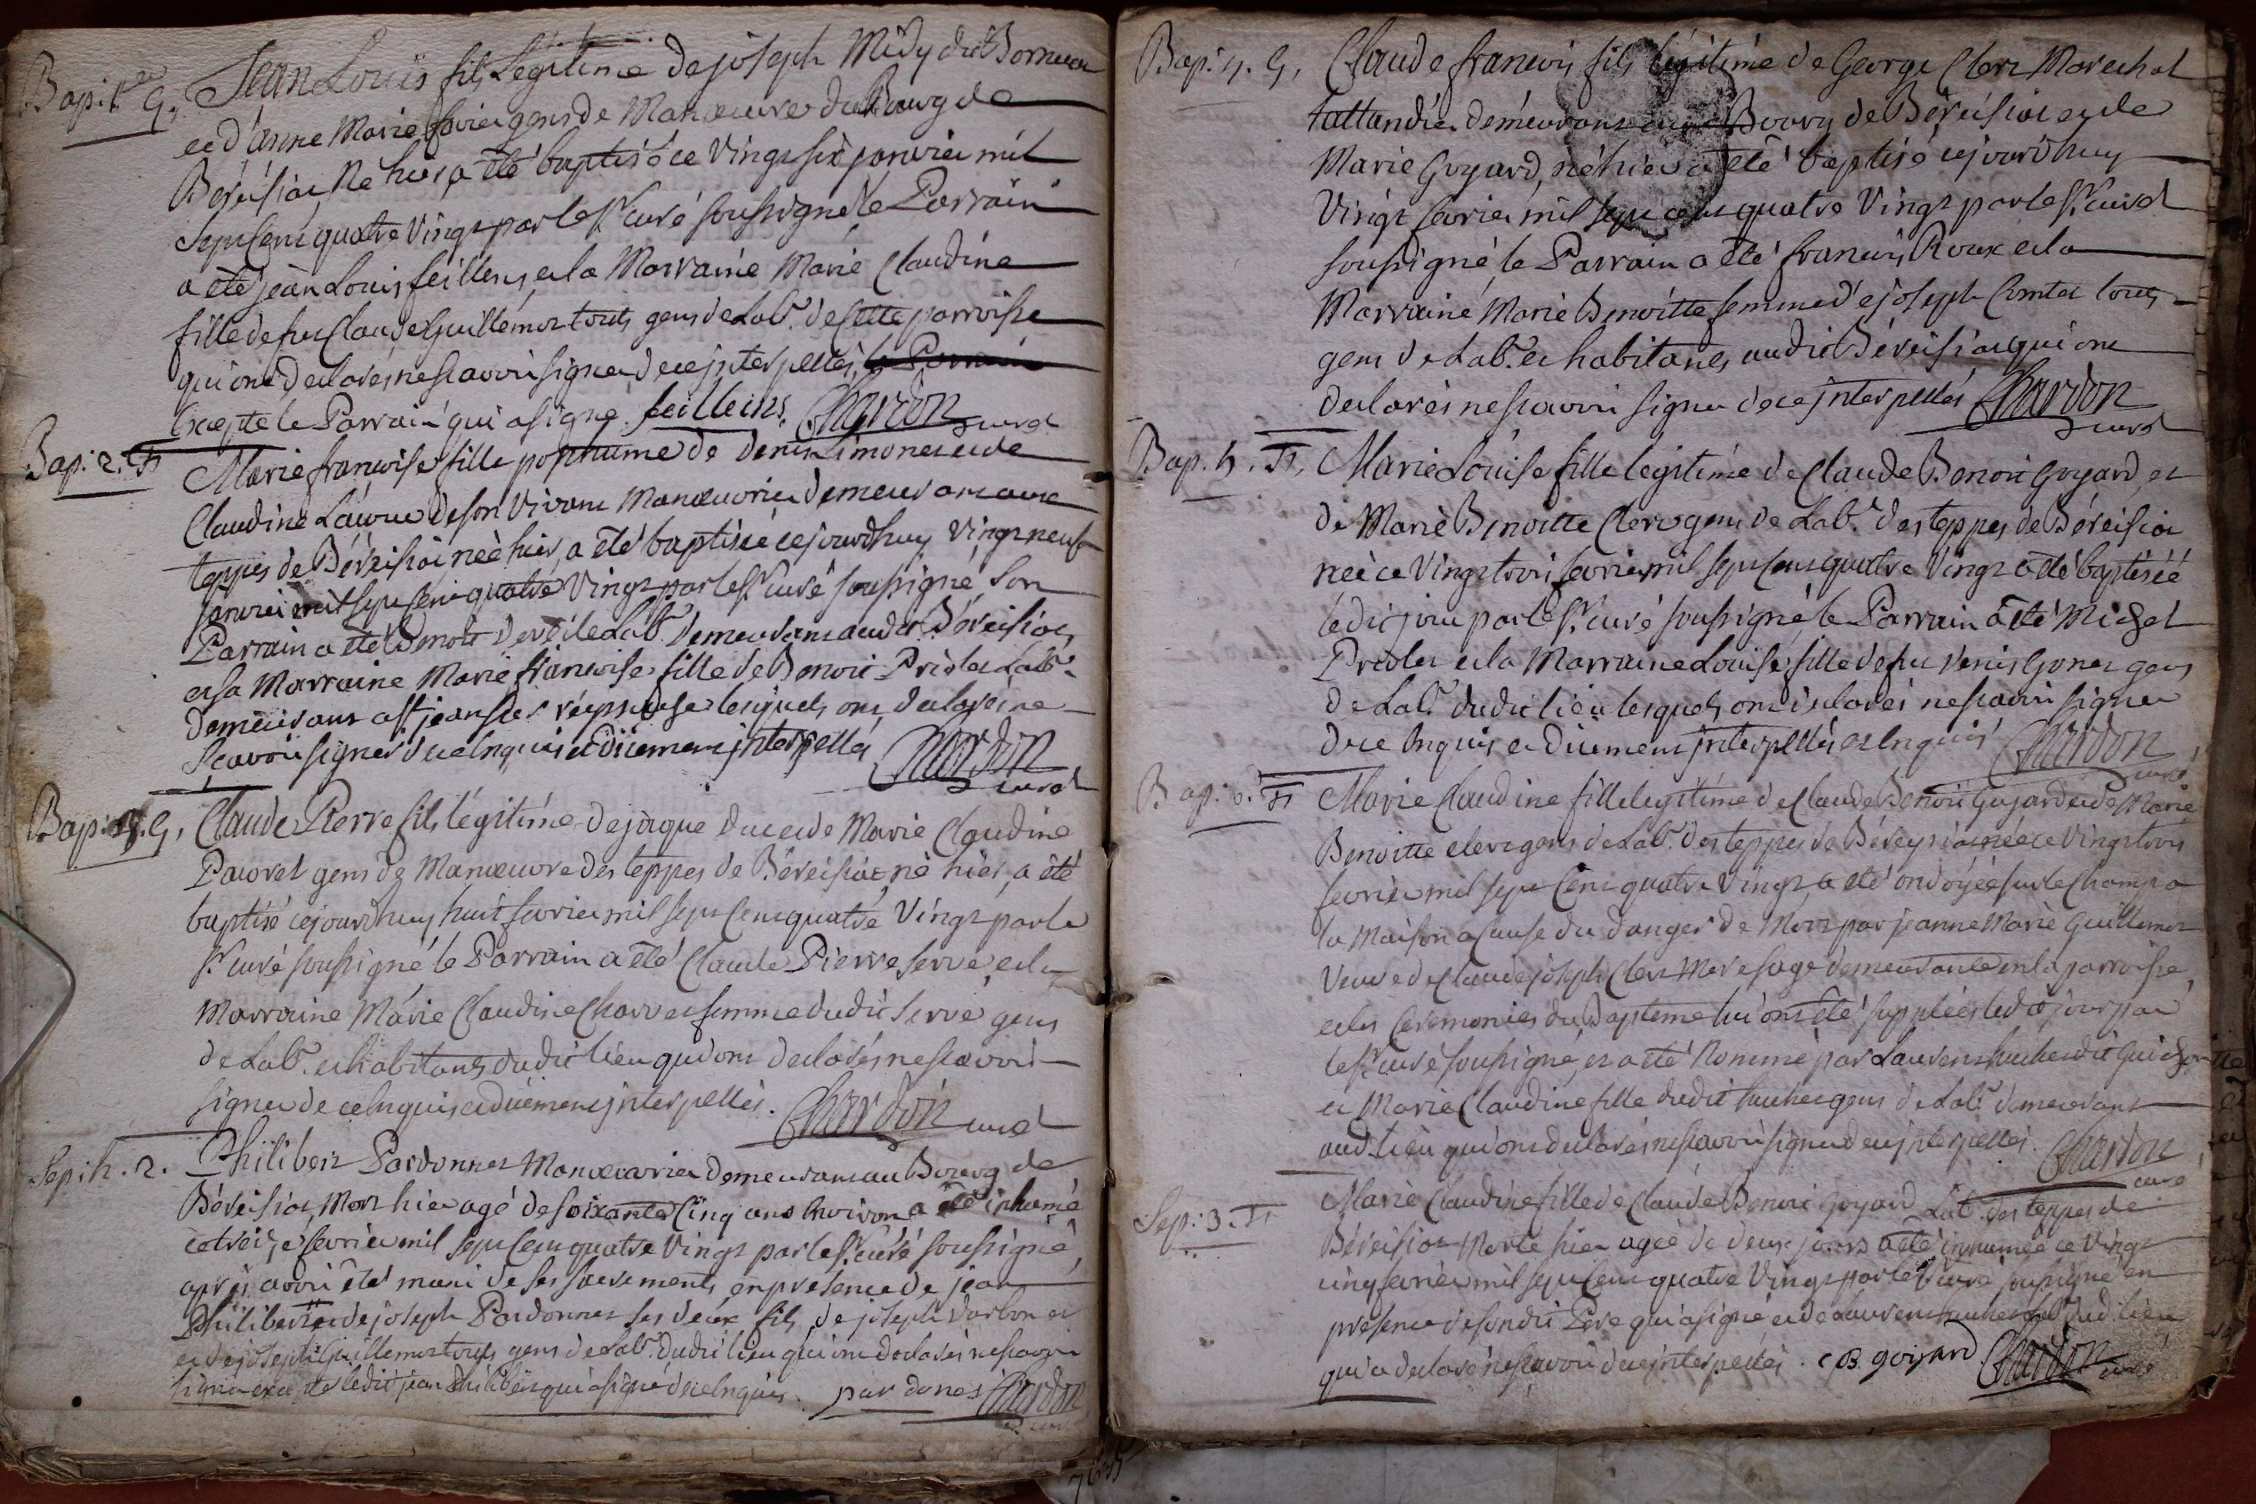 Bap. 1.er G.
Jean Louis fils Légitime de joseph Midy dit
et d'anne Marie gens de Manoeuvre du Bourg de
Béréisiat Né hier, a été baptisé ce Vingt six janvier mil
Sept Cent quatre Vingt par le Sr. curé soussigné, le Parrain
a été jean Louis feillens, et la Marraine Marie Claudine
fille de feu Claude Guillemot touts gens de Labr. de Cette parroisse
qui ont declarés ne scavoir signer de ce jnterpellés, le Parrain
Excepté le Parrain qui a signé. feillens. Chardon curé
Bap: 2. F.
Marie francoise fille posthume de Denis Simonet et de
Claudine de son Vivant Manoeuvrier demeurant aux
teppes de Béréisiat née hier, a été baptisée cejourdhuy Vingt neuf
janvier mil sept Cent quatre Vingt par le Sr. curé soussigné, son
Parrain a été Benoit de Labr. demeurant audit Béréisiat,
et sa Marraine Marie francoise fille de Benoit Labr.
demeurant a St. jean lesquels ont declarés ne
Scavoir signer de ce Enquis et düement jnterpellés Chardon curé
Bap: 3. G.
Claude Pierre fils légitime de jaque Duc et de Marie Claudine
gens de Manoeuvre des teppes de Béréisiat né hier, a été
baptisé cejourdhuy huit fevrier mil sept Cent quatre Vingt par le
Sr. curé soussigné le Parrain a été Claude Pierre Serve, et la
Marraine Marie Claudine femme dudit Serve gens
de Labr. et habitants dudit lieu qui ont declarés ne scavoir
signer de ce Enquis et düement jnterpellés. Chardon curé
Sep: h. 2.
Philibert Pardonnet Manoeuvrier demeurant au Bourg de
Béréisiat, Mort hier agé de soixante Cinq ans Environ a été inhumé
ce treize fevrier mil sept Cent quatre Vingt par le Sr. curé soussigné,
après avoir été muni de ses sacrements, en présence de jean
Philibert et de joseph Pardonnet ses deux fils, de joseph et
et de joseph Guillemot touts gens de Labr. dudit lieu qui ont declarés ne scavoir
signer excepté ledit jean Philibert qui a signé de ce Enquis. pardonet Chardon curé
Bap: 4. G.
Claude francois fils légitime de George Clerc Marechal
tattandier demeurant au Bourg de Béréisiat et de
Marie Goyard, né hier a été baptisé cejourdhuy
Vingt fevrier mil sept cent quatre Vingt par le Sr. curé
soussigné le Parrain a été francois Roux et la
Marraine Marie Benoitte femme de joseph Comtet touts
gens de Labr. et habitants audit Béréisiat qui ont
declarés ne scavoir signer de ce jnterpellés Chardon curé
Bap. 5. F.
Marie Louise fille legitime de Claude Benoit Goyard, et
de Marie Benoitte Clerc gens de Labr. des teppes de Béréisiat
née ce Vingt trois fevrier mil sept Cent quatre Vingt a été baptisée
ledit jour par le Sr. curé soussigné le Parrain a été Michel
et la Marraine Louise fille de feu Denis gens
de Labr. dudit lieu lesquels ont declarés ne scavoir signer
de ce Enquis et düement jnterpellés et Enquis Chardon curé
Bap: 6. F.
Marie Claudine fille legitime de Claude Benoit Goyard et de Marie
Benoitte clerc gens de Labr. des teppes de Béreysiat née ce Vingt trois
fevrier mil sept Cent quatre Vingt, a été ondoyée sur le Champ a
la Maison a Cause du danger de Mort par jeanne Marie Guillemot
Veuve de Claude joseph Clerc Mere sage demeurante en la parroisse,
et les Ceremonies du Bapteme lui ont été suppléés ledit jour par
le Sr. curé soussigné, et a été Nommé par Laurent dit
et Marie Claudine fille dudit gens de Labr. demeurant
aud. Lieu qui ont declarés ne scavoir signer de ce jnterpellés. Chardon curé
Sep: 3. F.
Marie Claudine fille de Claude Benoit Goyard Lab. des teppes de
Béréisiat Morte hier agée de deux jours a été inhumée ce Vingt
cinq fevrier mil sept Cent quatre Vingt par le Sr. curé soussigné en
presence de sondit Père qui a signé, et de Laurent Labr. dud. lieu
qui a declaré ne scavoir de ce jnterpellés. C B. goyard Chardon curé